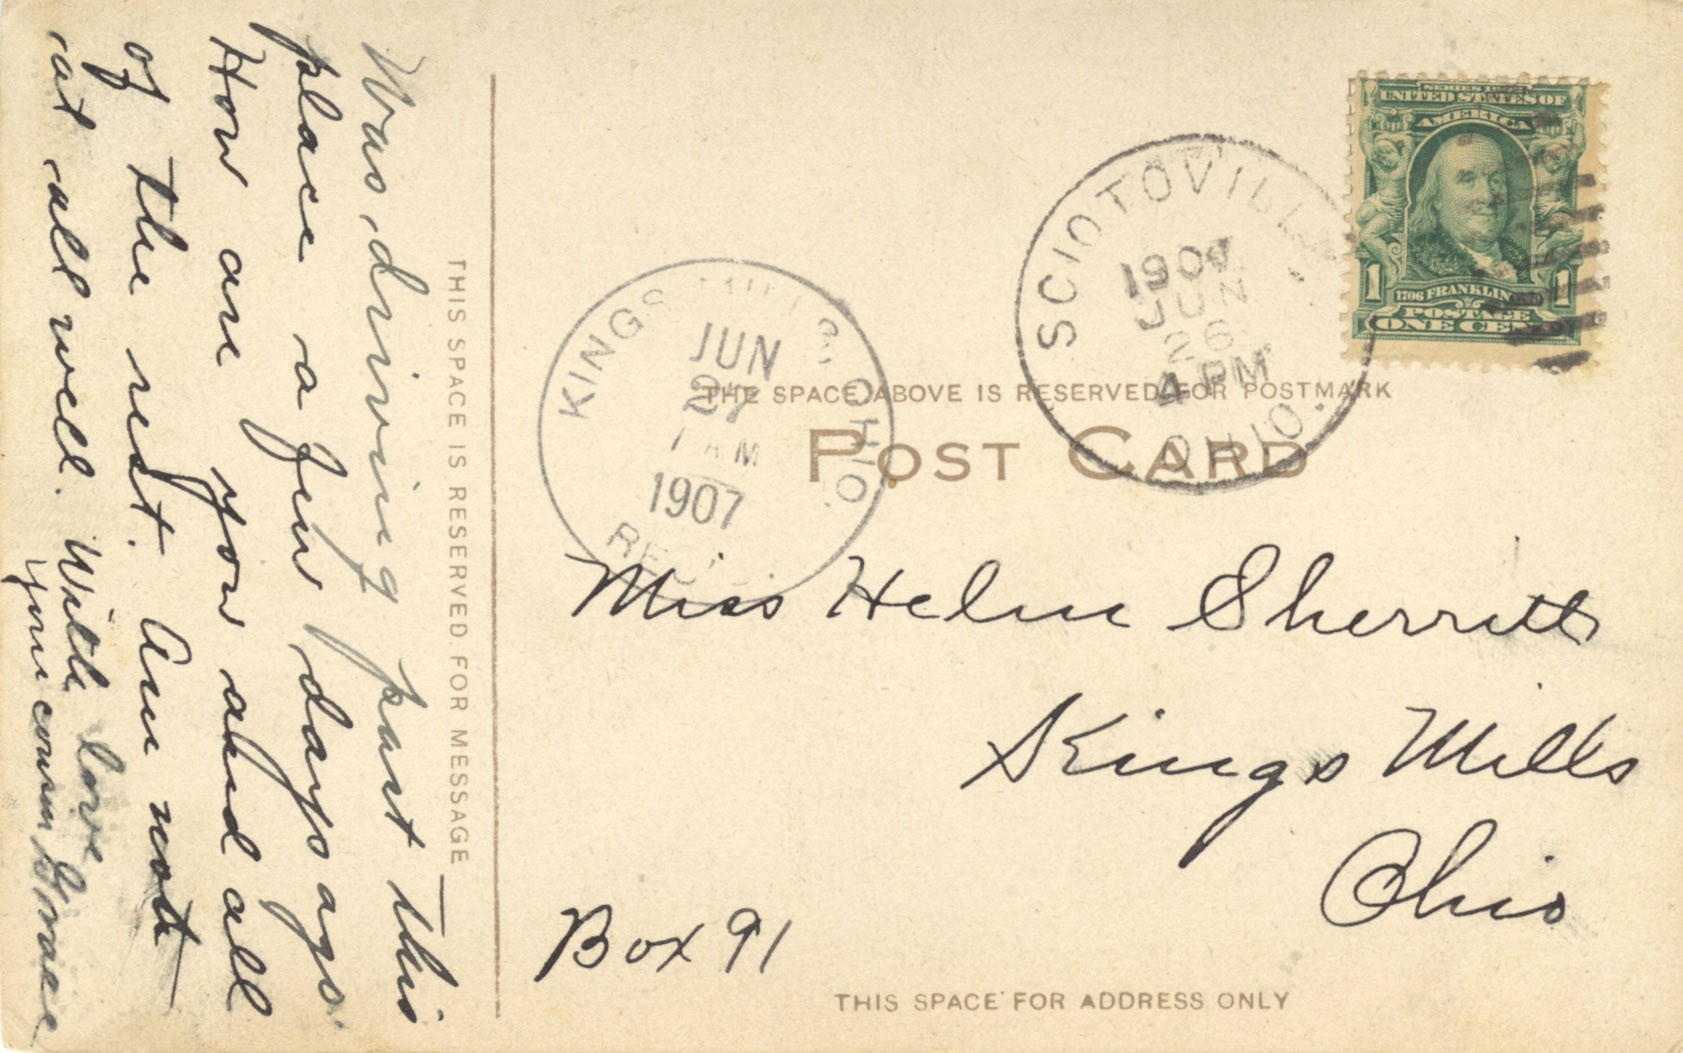 Was driving past this
place a few days ago.
How are you and all
of the rest. Am not
at all well. With love
your cousin Grace
THIS SPACE IS RESERVED FOR MESSAGE
SERIES
UNITED STATES OF
AMERICA
1 1
1706 FRANKLIN
POSTAGE
ONE CE
SCIOTOVILL
1907
JUN
26
4 PM
OHIO.
KINGS MILLS, OHIO.
JUN
27
AM
1907
THE SPACE ABOVE IS RESERVED FOR POSTMARK
POST CARD
Miss Helen Sherritt
Kings Mills
Ohio
Box 91
THIS SPACE FOR ADDRESS ONLY